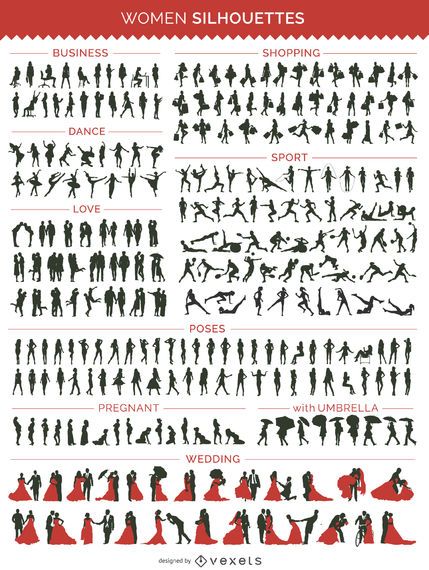 WOMEN SILHOUETTES
BUSINESS
SHOPPING
DANCE
SPORT
LOVE
POSES
PREGNANT
with UMBRELLA
WEDDING
designed by vexels